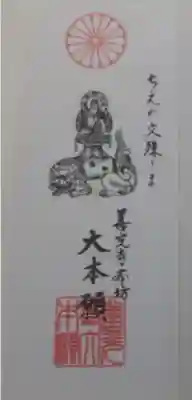 ちゑの文殊さま
善光寺本坊
大本願